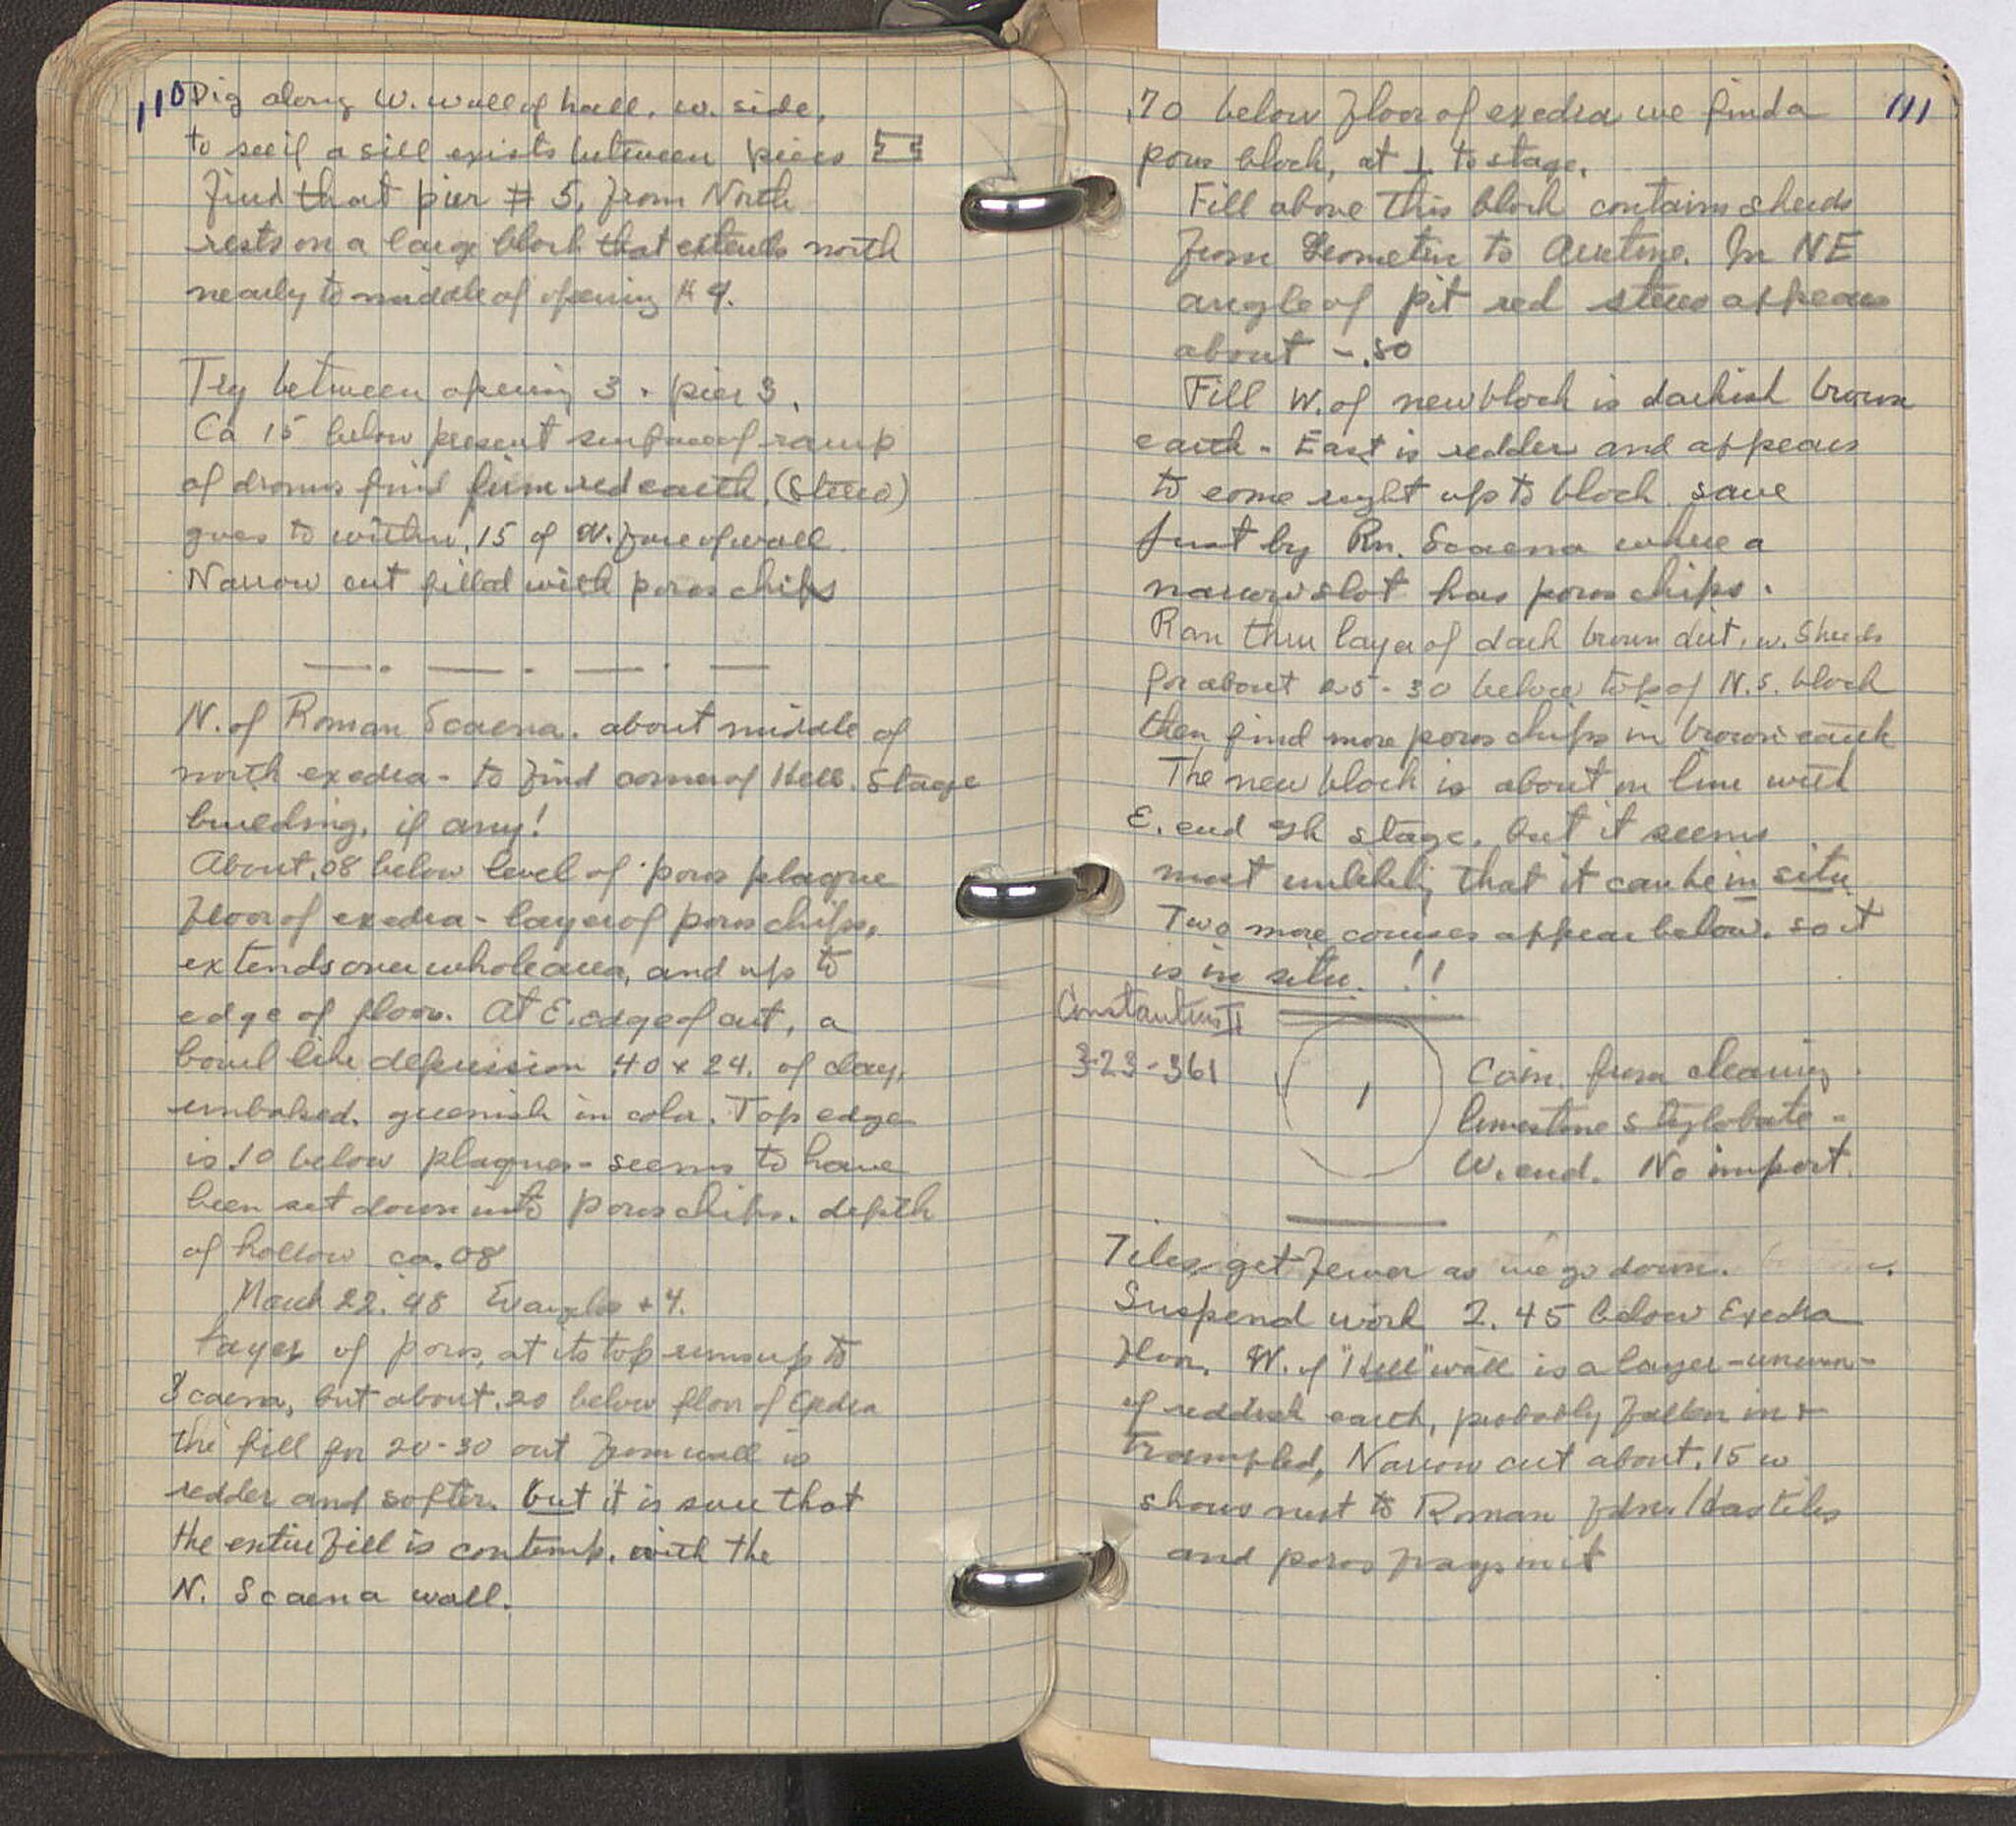 110
Dig along W. wall of hall. w. side,
to see if a sill exists between piers
find that pier # 5, from North
rests on a large block that extends north
nearly to middle of opening # 4.
Try between opening 3 + pier 3.
Ca 15 below present surface of ramp
of dromos find firm red earth, (stereo)
goes to within .15 of W. face of wall.
Narrow cut filled with poros chips
N. of Roman Scaena. about middle of
north exedra - to find corner of Hell. Stage
building, if any!
About .08 below level of poros plaque
floor of exedra - layer of poros chips,
extends over whole area, and up to
edge of floor. At E. edge of cut, a
bowl like depression .40 x 24. of clay,
unbaked. greenish in color. Top edge
is .10 below plaques - seems to have
been set down into poros chips. depth
of hollow ca. 08
March 22. 48 Evanglos + 4.
Layer of poros, at its top runs up to
Scaena, but about .20 below floor of Exedra
the fill for 20-30 out from wall is
redder and softer. but it is sure that
the entire fill is contemp. with the
N. Scaena wall.
111
.70 below floor of exedra we find a
poros block, at ⊥ to stage.
Fill above this block contains sherds
from Geometric to Arretine. In NE
angle of pit red stereo appears
about - .50
Fill W. of new block is darkish brown
earth - East is redder and appears
to come right up to block save
just by Rn. Scaena where a
narrow slot has poros chips.
Ran thru layer of dark brown dirt, w. Sherds
for about 25-30 below top of N.S. block
then find more poros chips in brown earth
The new block is about on line with
E. end Gk stage, but it seems
most unlikely that it can be in situ
Two more courses appear below, so it
is in situ. !!
Constantius II
323-361
1
Coin from cleaning
limestone stylobate -
W. end. No import.
Tiles get fewer as we go down.
Suspend work 2.45 below Exedra
floor. W. of "Hell" wall is a layer - uneven -
of reddish earth, probably fallen in +
trampled, Narrow cut about .15 w
shows next to Roman fdn. Has tiles
and poros frags in it